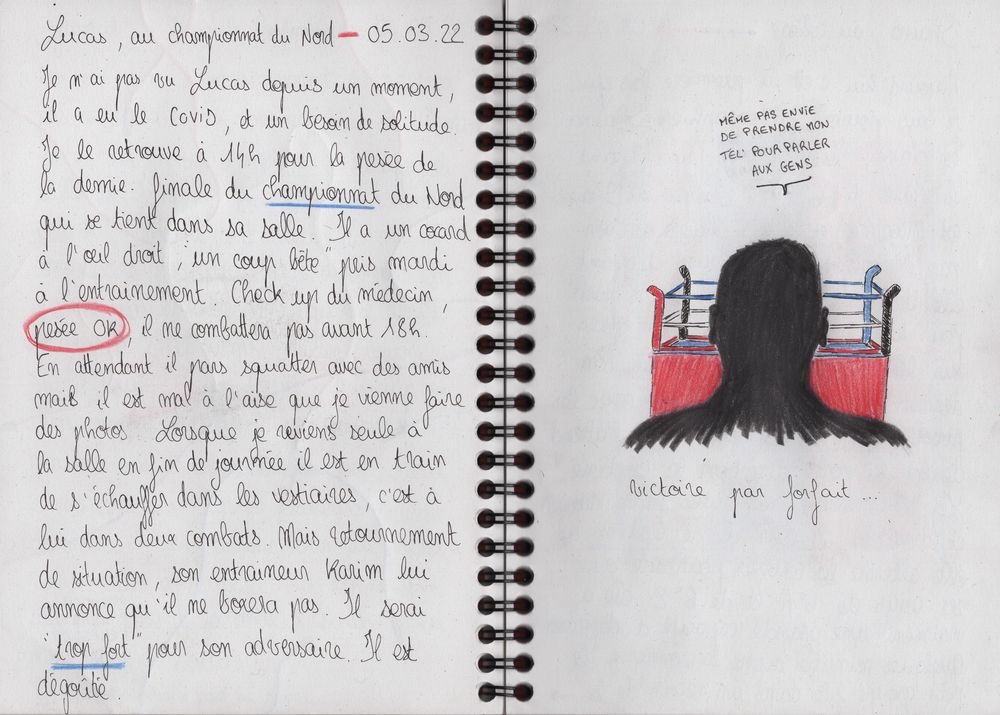 Lucas, au championnat du Nord - 05.03.22
Je n'ai pas vu Lucas depuis un moment,
il a eu le COVID, et un besoin de solitude.
Je le retrouve à 14h pour la pesée de
la demie-finale du championnat du Nord
qui se tient dans sa salle. Il a un cocard
à l'oeil droit, "un coup bête" pris mardi
à l'entrainement. Check up du médecin,
pesée OK, il ne combattera pas avant 18h.
En attendant il pars squatter avec des amis
mais il est mal à l'aise que je vienne faire
des photos. Lorsque je reviens seule à
la salle en fin de journée il est en train
de s'échauffer dans les vestiaires, c'est à
lui dans deux combats. Mais retournement
de situation, son entraineur Karim lui
annonce qu'il ne boxera pas. Il serai
"trop fort" pour son adversaire. Il est
dégoûté.
MÊME PAS ENVIE
DE PRENDRE MON
TEL POUR PARLER
AUX GENS
victoire par forfait...